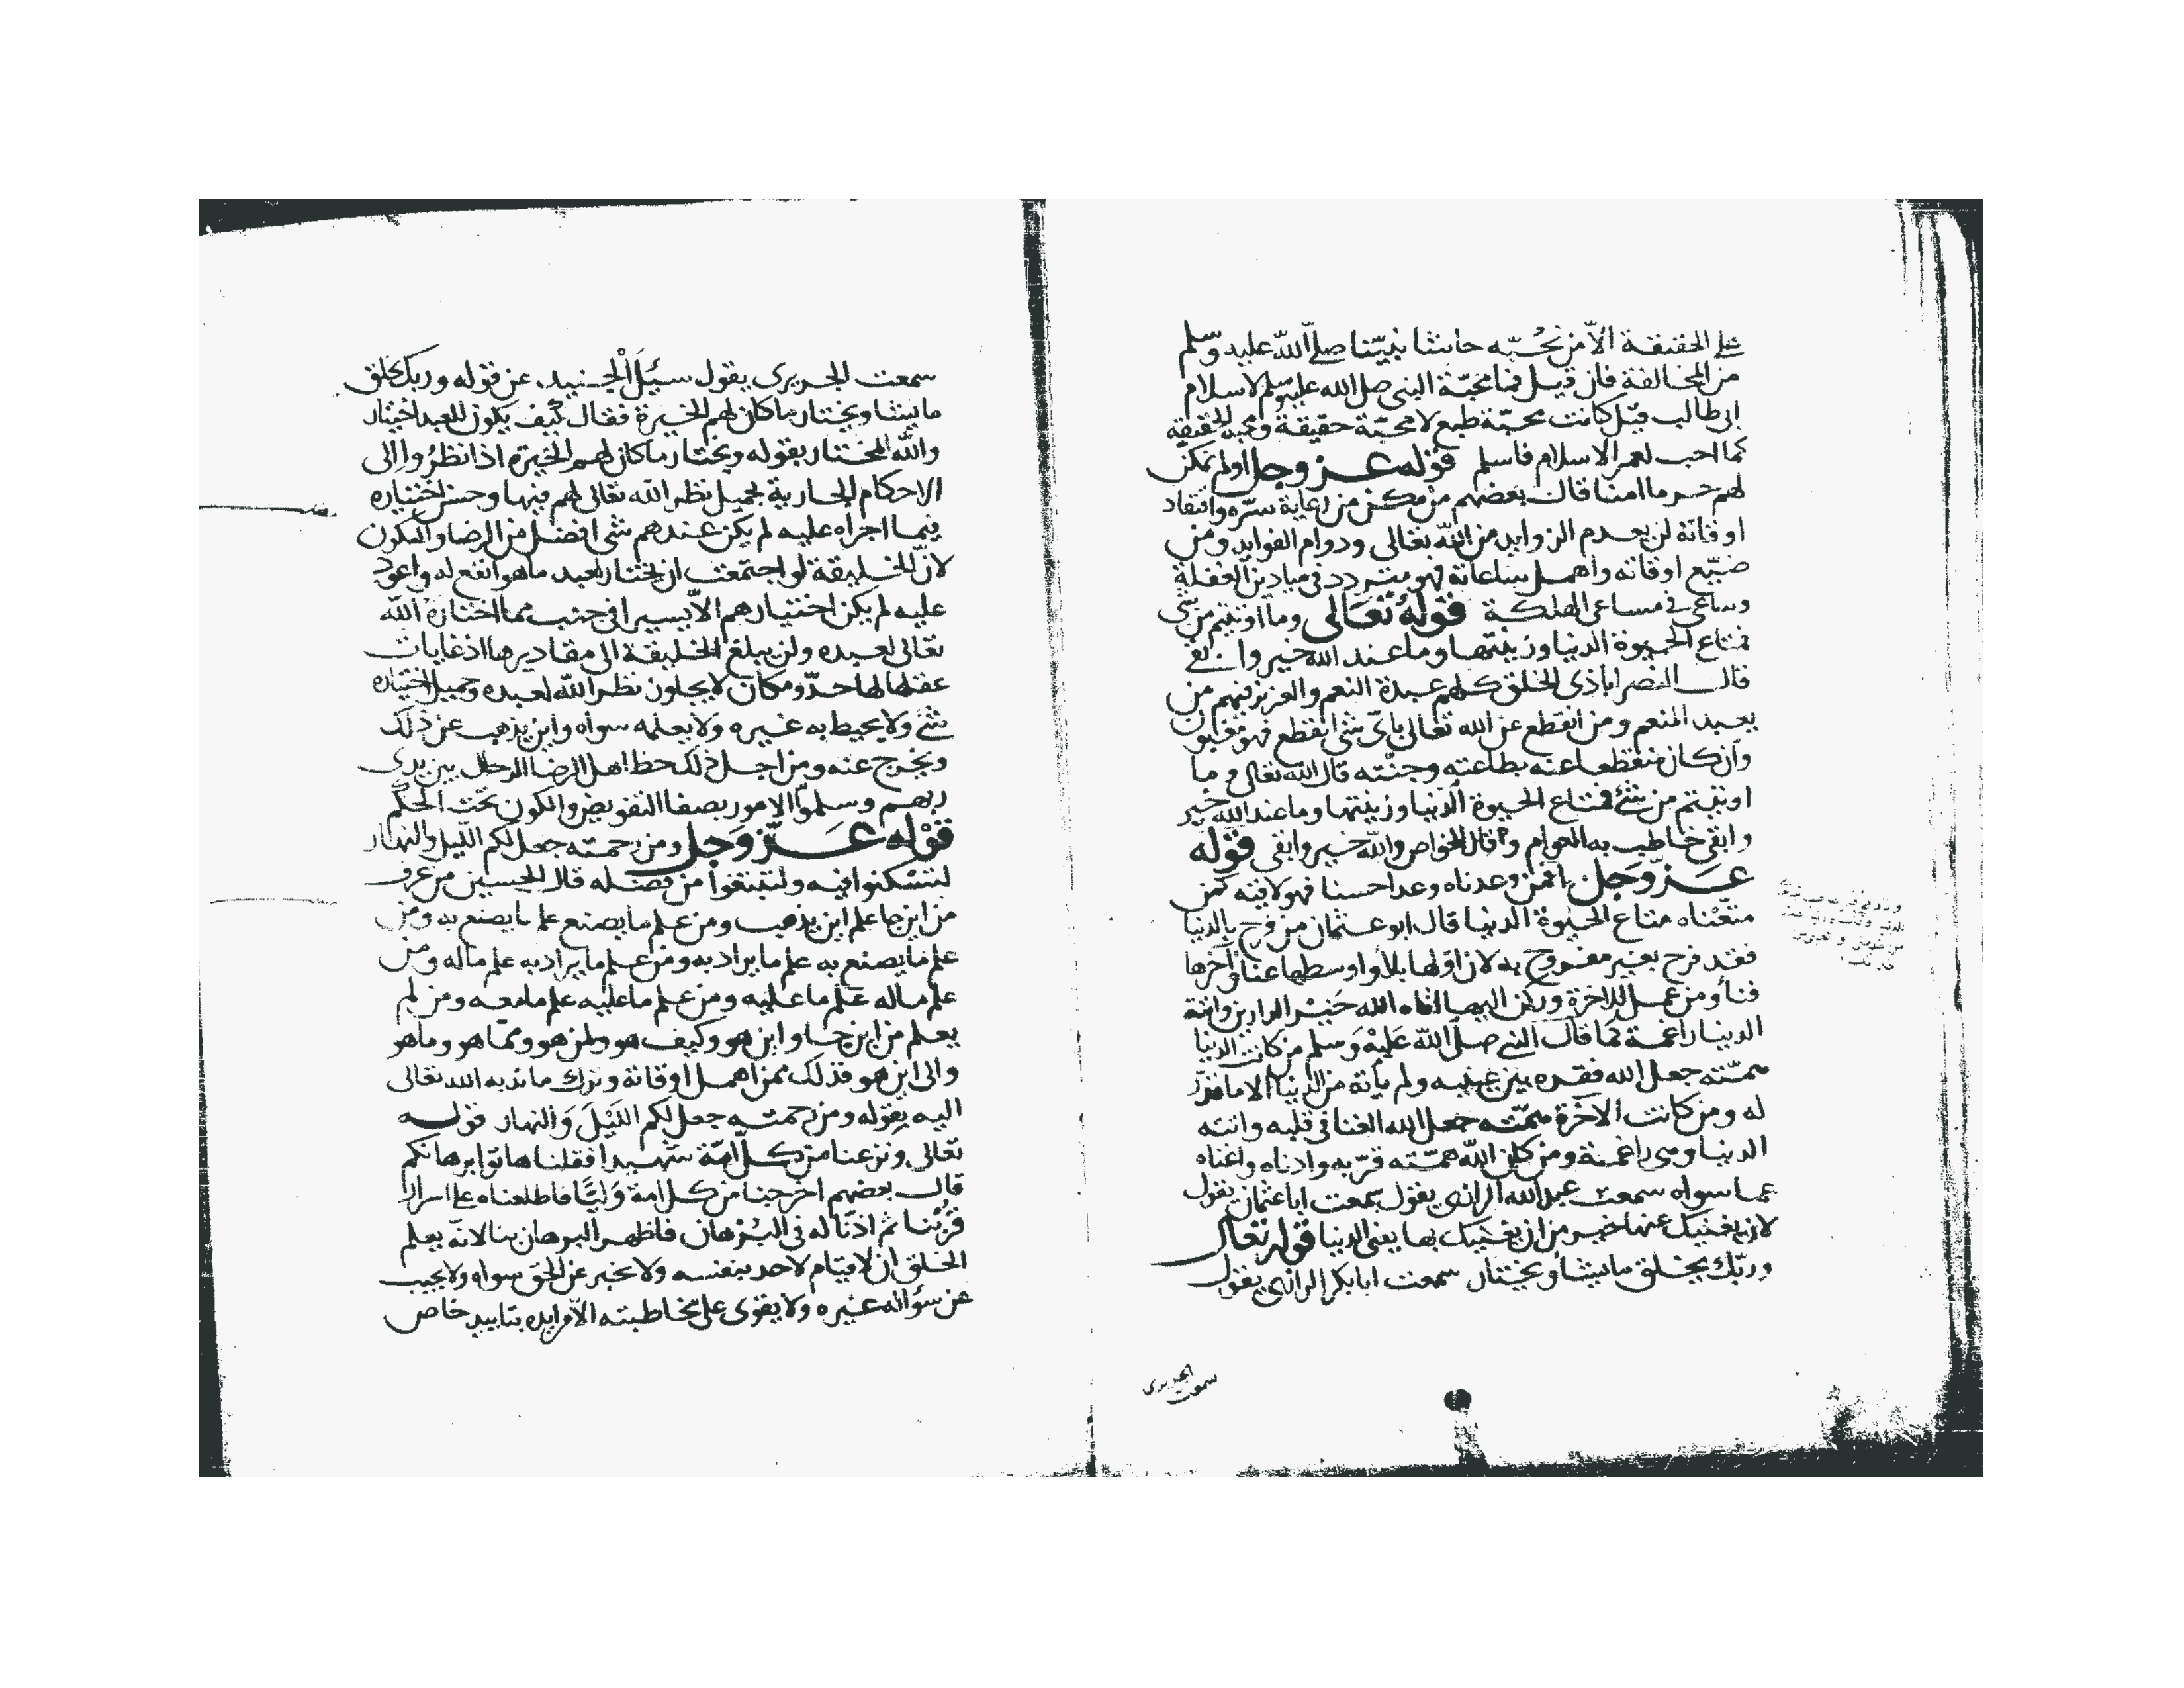 على الحقيقة الا من نحبه حاشا نبينا صلى الله عليه وسلم
من المخالفة فان قيل فما محبة النبى صلى الله عليه وسلم لاسلام
ابى طالب قيل كانت محبة طبع لا محبة حقيقة ومحبة الحقيقة
كما احب لعمر الاسلام فاسلم قوله عز وجل اولم نمكن
لهم حرما امنا قال بعضهم من مكن من رعاية سره وافتقاد
اوقاته لن يعدم الزوايد من الله تعالى ودوام الفوايد ومن
ضيع اوقاته واهمل ساعاته فهو متردد فى ميادين الغفلة
وساعى فى مساعى الهلكة قوله تعالى وما اوتيتم من شى
فمتاع الحيوة الدنيا وزينتها وما عند الله خير وابقى
قال النصراباذى الخلق كلهم عبدة النعم والعزيز فيهم من
يعبد المنعم ومن انقطع عن الله تعالى باى شى انقطع فهو مغبون
وان كان منقطعا عنه بطاعته وجنته قال الله تعالى وما
اوتيتم من شئ فمتاع الحيوة الدنيا وزينتها وما عند الله خير
وابقى خاطب به العوام وقال للخواص والله خير وابقى قوله
عز وجل افمن وعدناه وعدا حسنا فهو لاقيه كمن
متعناه متاع الحيوة الدنيا قال ابو عثمان من فرح بالدنيا
فقد فرح بغير مفروح به لان اولها بلاء واوسطها عناء واخرها
فناء ومن عمل للاخرة وركن اليها اتاه الله خير الدارين واتته
الدنيا راغمة كما قال النبى صلى الله عليه وسلم من كانت الدنيا
همته جعل الله فقره بين عينيه ولم ياته من الدنيا الا ما قدر
له ومن كانت الاخرة همته جعل الله الغنا فى قلبه واتته
الدنيا وهى راغمة ومن كان الله همته قربه وادناه واغناه
عما سواه سمعت عبد الله الرازى يقول سمعت ابا عثمان يقول
لان يغنيك عنها خير من ان يغنيك بها يعنى الدنيا قوله تعالى
وربك يخلق ما يشا ويختار سمعت ابا بكر الرازى يقول
سمعت الجريرى
سمعت الجريرى يقول سئل الجنيد عن قوله وربك يخلق
ما يشا ويختار ما كان لهم الخيرة فقال كيف يكون للعبد اختيار
والله المختار بقوله ويختار ما كان لهم الخيرة اذا نظروا الى
الاحكام الجارية بجميل نظر الله تعالى لهم فيها وحسن اختياره
فيما اجراه عليه لم يكن عندهم شى افضل من الرضا والسكون
لان الخليقة لو اجتمعت ان يختار لعبد ما هو انفع له واعود
عليه لم يكن اختيارهم الا يسيرا فى جنب مما اختاره الله
تعالى لعبده ولن يبلغ الخليقة الى مقاديرها اذ غايات
عقلها لها حد ومكان لا يجاوز نظر الله لعبده وجميل اختياره
شئ ولا يحيط به غيره ولا يعلمه سواه واين يذهب عن ذلك
ويخرج عنه ومن اجل ذلك حظ اهل الرضا الرحال بين يدى
ربهم وسلموا الامور بصفا التفويض والكون تحت الحكم
قوله عز وجل ومن رحمته جعل لكم الليل والنهار
لتسكنوا فيه ولتبتغوا من فضله قال الحسين من عرف
من اين جا علم اين يذهب ومن علم ما يصنع علم ما يصنع به ومن
علم ما يصنع به علم ما يراد به ومن علم ما يراد به علم ماله ومن
علم ماله علم ما عليه ومن علم ما عليه علم ما معه ومن لم
يعلم من اين جا واين هو وكيف هو ولمن هو ومما هو وما هو
والى اين هو فذلك ممن اهمل اوقاته وترك ما ندبه الله تعالى
اليه بقوله ومن رحمته جعل لكم الليل والنهار قوله
تعالى ونزعنا من كل امة شهيدا فقلنا هاتوا برهانكم
قال بعضهم اخرجنا من كل امة وليا فاطلعناه على اسرار
قربنا ثم اذنا له فى البرهان فاظهر البرهان بنا لانه يعلم
الخلق ان لا قيام لاحد بنفسه ولا يخبر عن الحق سواه ولا يجيب
عن سؤاله غيره ولا يقوى على مخاطبته الا من ايده بتاييد خاص